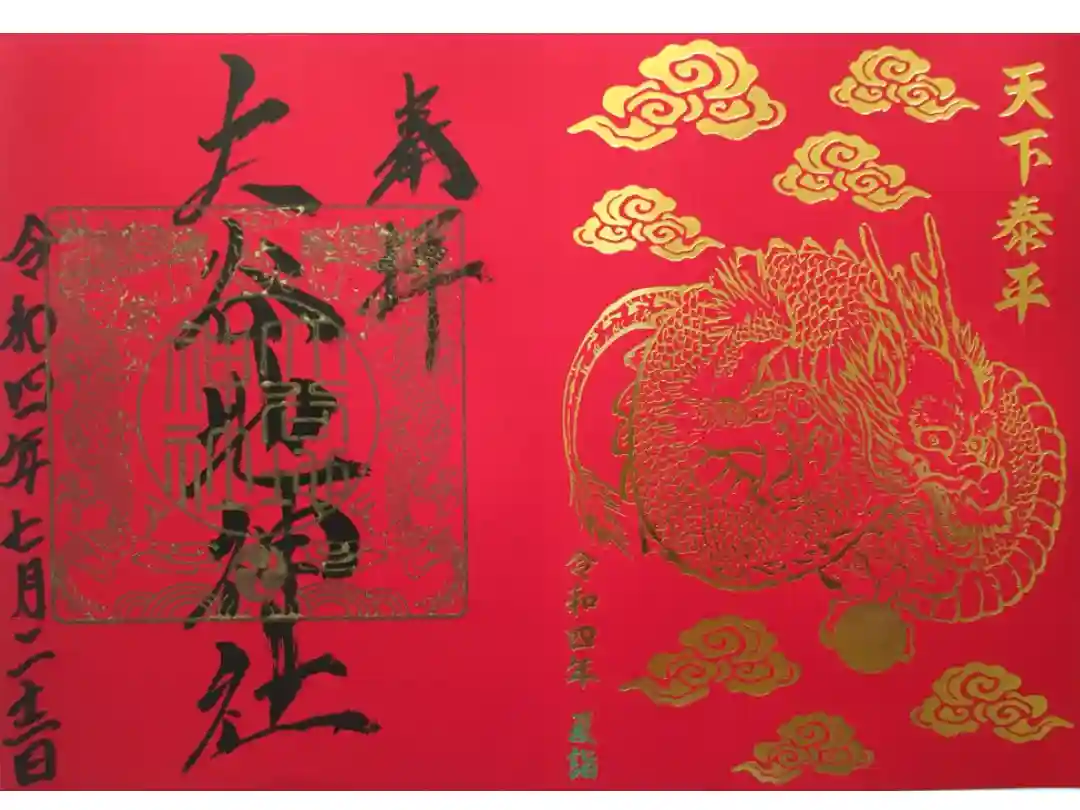 天下泰平
令和四年 夏詣
奉拝
大谷地神社
令和四年七月二十三日